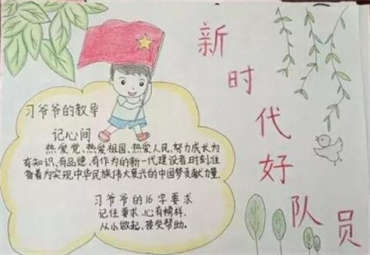 新时代好队员
习爷爷的教导
记心间
热爱党、热爱祖国、热爱人民,努力成长为
有知识、有品德、有作为的新一代建设者,时刻准
备着为实现中华民族伟大复兴的中国梦贡献力量.
习爷爷的16字要求
记住要求,心有榜样,
从小做起,接受帮助.